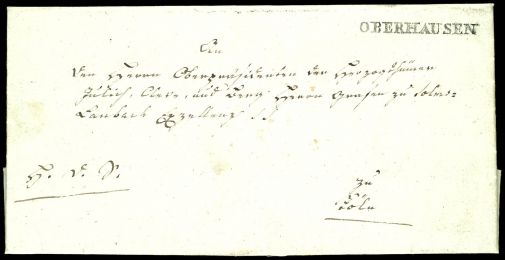 OBERHAUSEN
An
den Herrn Oberpräsidenten der Herzogthümer
Jülich, Cleve, und Berg Herrn Grafen zu Solms-
Laubach Exzellenz
H. v. S.
zu
Cöln